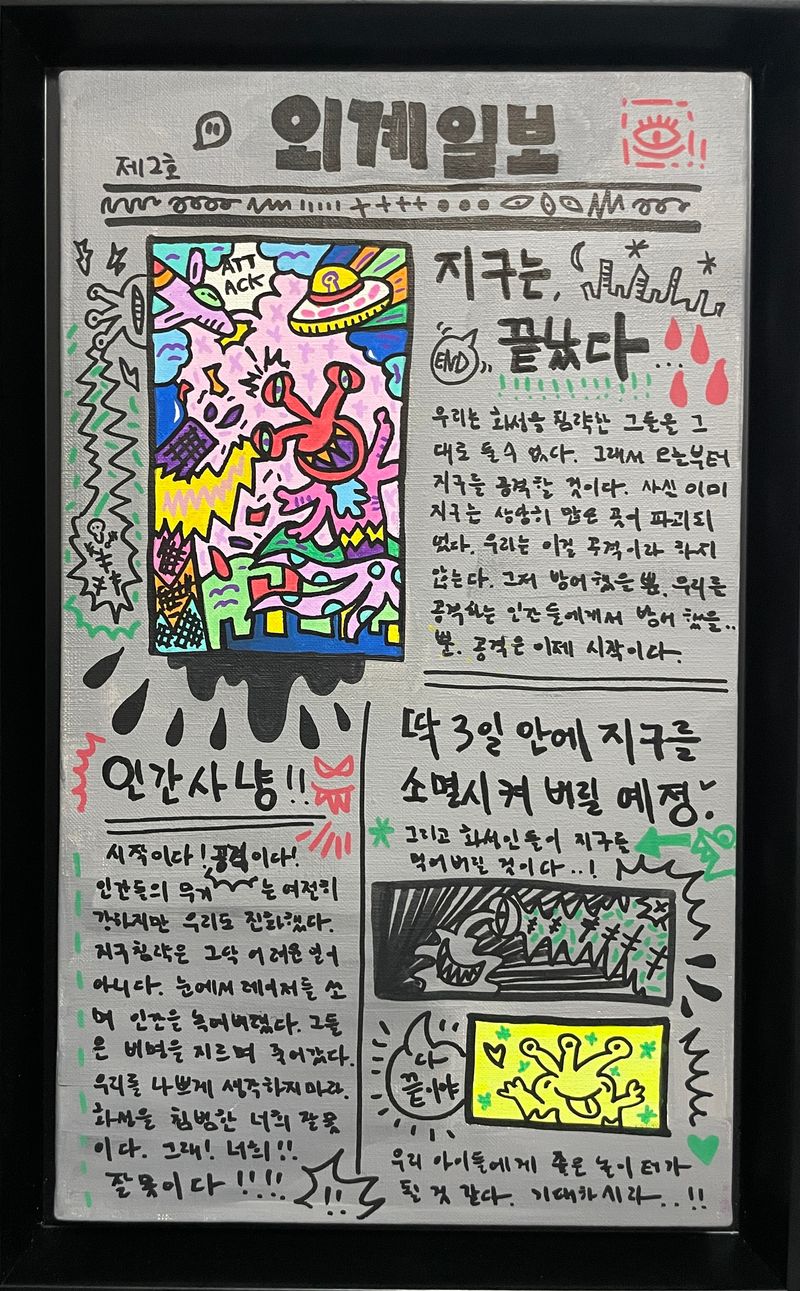 외계일보
제2호
ATT
ACK
지구는,
END
끝났다...
우리는 화성을 침략한 그들을 그
대로 둘 수 없다. 그래서 오늘부터
지구를 공격할 것이다. 사실 이미
지구는 상당히 많은 곳이 파괴되
었다. 우리는 이걸 공격이라 하지
않는다. 그저 방어했을 뿐. 우리를
공격하는 인간들에게서 방어했을..
뿐. 공격은 이제 시작이다.
인간사냥!!
시작이다! 공격이다!
인간들의 무기는 여전히
강하지만 우리도 진화했다.
지구침략은 그닥 어려운 일이
아니다. 눈에서 레이저를 쏘
며 인간은 녹여버렸다. 그들
은 비명을 지르며 죽어갔다.
우리를 나쁘게 생각하지마라.
화성을 침범한 너희 잘못
이다. 그래! 너희!!
잘못이다!!!!
!!
딱 3일 안에 지구를
소멸시켜 버릴 예정
그리고 화성인들이 지구를
먹어버릴 것이다..!
다
끝이야
우리 아이들에게 좋은 놀이터가
될 것 같다. 기대하시라..!!